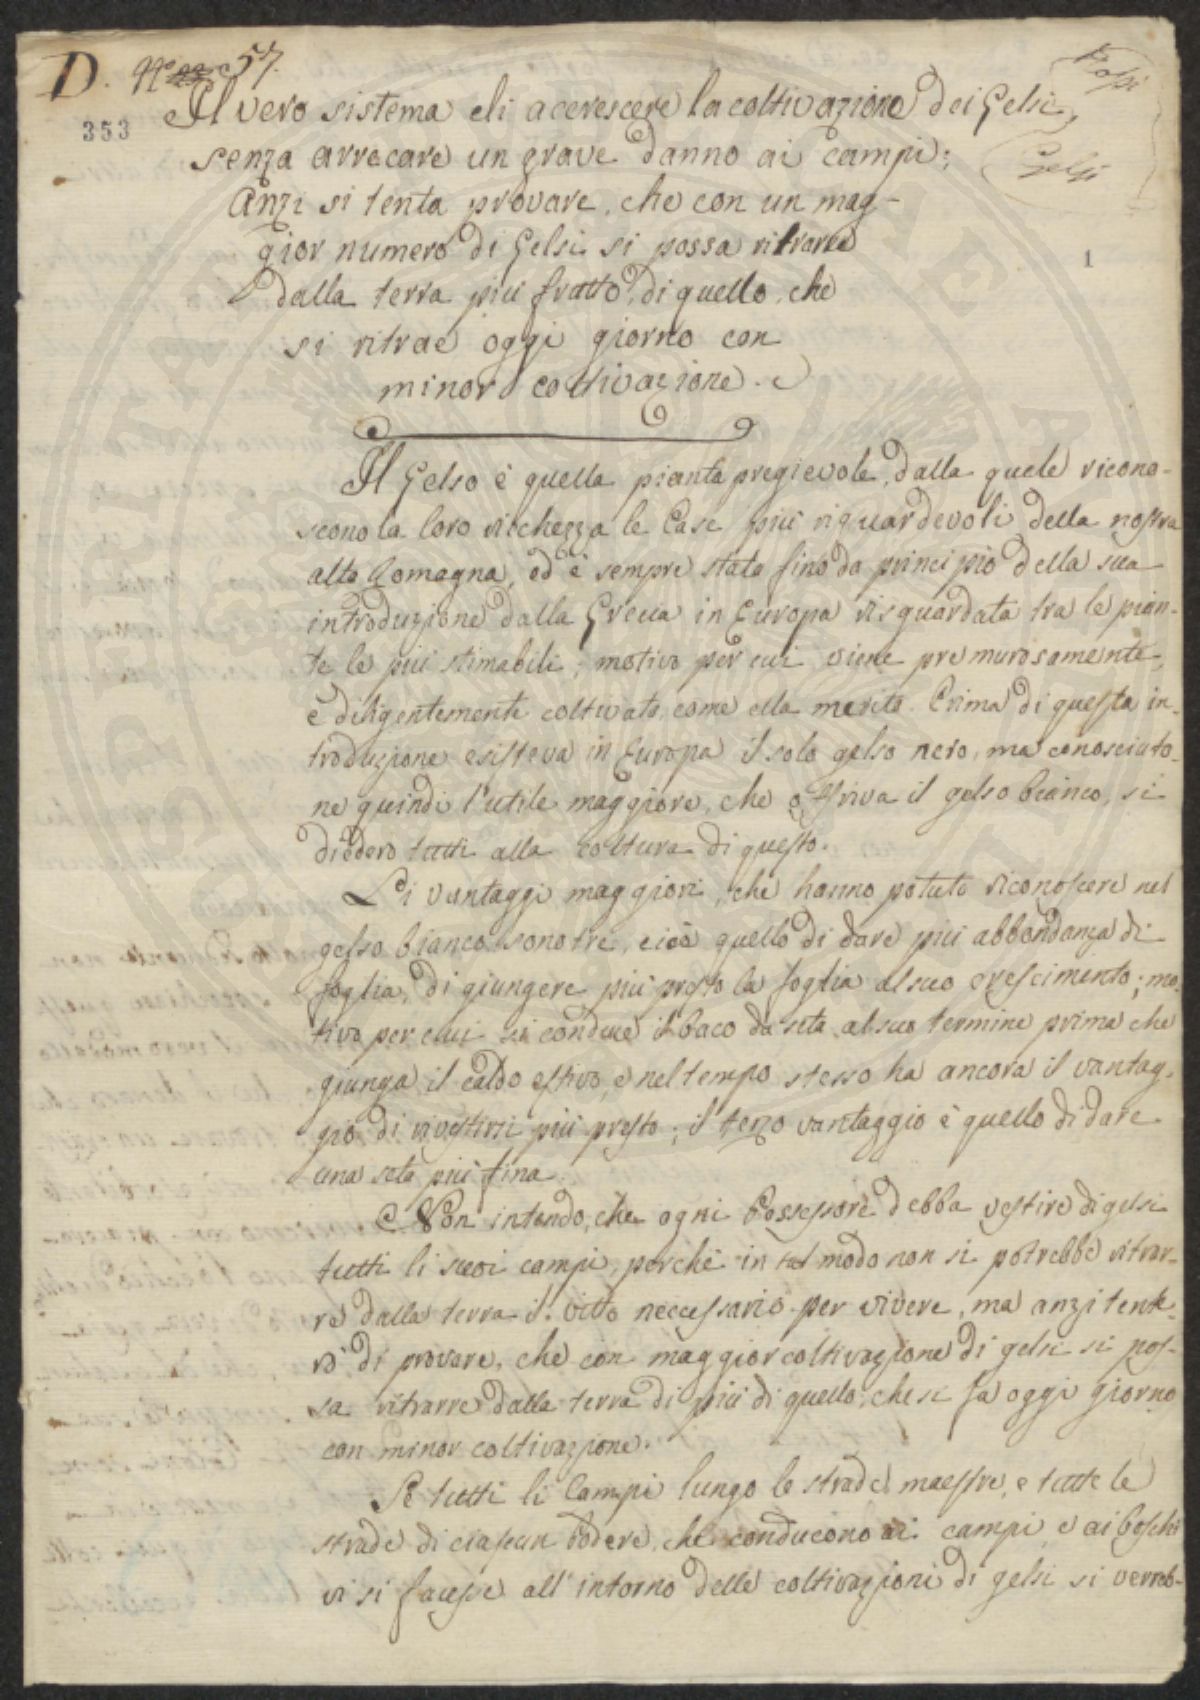 D. N.º 57.
353
Gelsi
Il vero sistema di acerescere la coltivazione dei Gelsi,
senza arrecare un grave danno ai campi;
Anzi si tenta provare, che con un mag-
gior numero di Gelsi si possa ritrarre
dalla terra più frutto, di quello, che
si ritrae oggi giorno con
minor coltivazione.
1
Il Gelso è quella pianta pregievole, dalla quale ricono-
scono la loro ricchezza le Case più riguardevoli della nostra
alta Romagna, ed è sempre stata fino da principio della sua
introduzione dalla Grecia in Europa risguardata tra le pian-
te le più stimabili; motivo per cui viene premurosamente,
e diligentemente coltivata, come ella merita. Prima di questa in-
troduzione esisteva in Europa il solo gelso nero, ma conosciuto-
ne quindi l'utile maggiore, che offriva il gelso bianco, si
diedero tutti alla coltura di questo.
Li vantaggi maggiori, che hanno potuto riconoscere nel
gelso bianco sono tre, cioè quello di dare più abbondanza di
foglia, di giungere più presto la foglia al suo crescimento; mo-
tivo per cui si conduce il baco da seta al suo termine prima che
giunga il caldo estivo, e nel tempo stesso ha ancora il vantag-
gio di rivestirsi più presto; il terzo vantaggio è quello di dare
una seta più fina.
Non intendo, che ogni Possessore debba vestire di gelsi
tutti li suoi campi, perchè in tal modo non si potrebbe ritrar-
re dalla terra il vitto neccessario per vivere, ma anzi tente-
rò di provare, che con maggior coltivazione di gelsi si pos-
sa ritrarre dalla terra di più di quello, che si fa oggi giorno
con minor coltivazione.
Se tutti li Campi lungo le strade maestre, e tutte le
strade di ciascun Podere, che conducono ai campi, e ai boschi
vi si facesse all'intorno delle coltivazioni di gelsi si verreb-